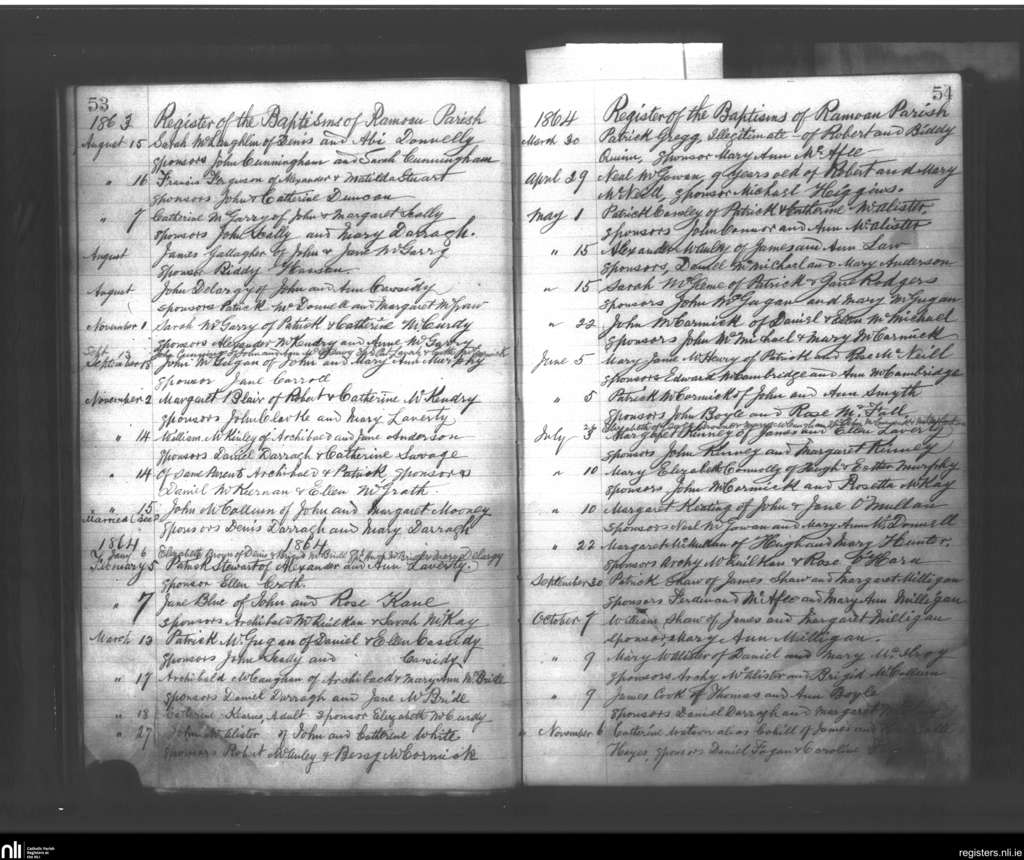 53
1863 Register of the Baptisms of Ramoan Parish
August 15 Sarah McLaughlin of Denis and Abi Donnelly
sponsors John Cunningham and Sarah Cunningham
" 16 Francis Ferguson of Alexander & Matilda Stuart
sponsors John & Catherine Duncan
" 7 Catherine McGarry of John & Margaret Scally
sponsors John Scally and Mary Darragh.
August James Gallagher of John & Jane McGarry
sponsor Biddy Hassan
August John Delargy of John and Ann Cassidy
sponsors Patrick McDonnell and Margaret McGraw
November 1 Sarah McGarry of Patrick & Catherine McCurdy
sponsors Alexander McKendry and Anne McGarry
Sept. 13
September 18 John McGolgan of John and Mary Ann Murphy
sponsor Jane Carroll
November 2 Margaret Blair of Robert & Catherine McKendry
sponsors John Clarke and Mary Laverty
" 14 William McKinley of Archibald and Jane Anderson
sponsors Daniel Darragh & Catherine Savage
" 14 Of Same Parents Archibald & Patrick, sponsors
Daniel McKiernan & Ellen McGrath.
" 15 John McCollum of John and Margaret Mooney
sponsors Denis Darragh and Mary Darragh
1864 1864
Jany 6 Elizabeth Brown of Denis & Brigid McBride
February 5 Patrick Stewart of Alexander and Ann Laverty.
sponsor Ellen
" 7 Jane Blue of John and Rose Kane
sponsors Archibald McQuilkan & Sarah McKay
March 13 Patrick McGugan of Daniel & Ellen Cassidy
sponsors John Scally and Cassidy
" 17 Archibald McCaughan of Archibald & Mary Ann McBride
sponsors Daniel Darragh and Jane McBride
" 18 Catherine Kearns, Adult Sponsor Elizabeth McCurdy
" 27 John McAlister of John and Catherine White
sponsors Robert McAuley & Bessy McCormick
54
1864 Register of the Baptisms of Ramoan Parish
March 30 Patrick Gregg, Illegitimate of Robert and Biddy
Quinn, sponsor Mary Ann McAfee
April 29 Neal McGowan, 9 years old of Robert and Mary
McNeill, sponsor Michael Heiggins.
May 1 Patrick Casley of Patrick & Catherine McAlister
sponsors John Connor and Ann McAlister
" 15 Alexander McAuley of James and Ann Law
sponsors, Daniel McMichael and Mary Anderson
" 15 Sarah of Patrick & Jane Rodgers
sponsors John McGugan and Mary McGugan
" 22 John McCormick of Daniel & Ellen McMichael
sponsors John McMichael & Mary McCormick
June 5 Mary Jane McHenry of Patrick and Rose McNeill
sponsors Edward McCambridge and Ann McCambridge
" 5 Patrick McCormick of John and Ann Smyth
sponsors John Boyle and Rose McFall
July 3 Margaret Kinney of James and Ellen Laverty
sponsors John Kinney and Margaret Kinney
" 10 Mary Elizabeth Connolly of Hugh & Esther Murphy
sponsors John McCormick and Rosetta McKay
" 10 Margaret Keating of John & Jane O'Mullan
sponsors Neal McGowan and Mary Ann McDonnell
" 22 Margaret McMullan of Hugh and Mary Hunter.
sponsors Archy McQuilkan & Rose O'Hara
September 30 Patrick Shaw of James Shaw and Margaret Milligan
sponsors Ferdinand McAfee and Mary Ann Milligan
October 7 William Shaw of James and Margaret Milligan
sponsor Mary Ann Milligan.
" 9 Mary McAlister of Daniel and Mary McIlroy
sponsors Archy McAlister and Brigid McCollum
" 9 James Cook of Thomas and Ann Boyle
sponsors Daniel Darragh and Margaret
" November 6 Catherine Watson alias Cahill of James and
Hayes, sponsors Daniel Fagan & Caroline
nli
Catholic Parish Registers at the NLI
registers.nli.ie